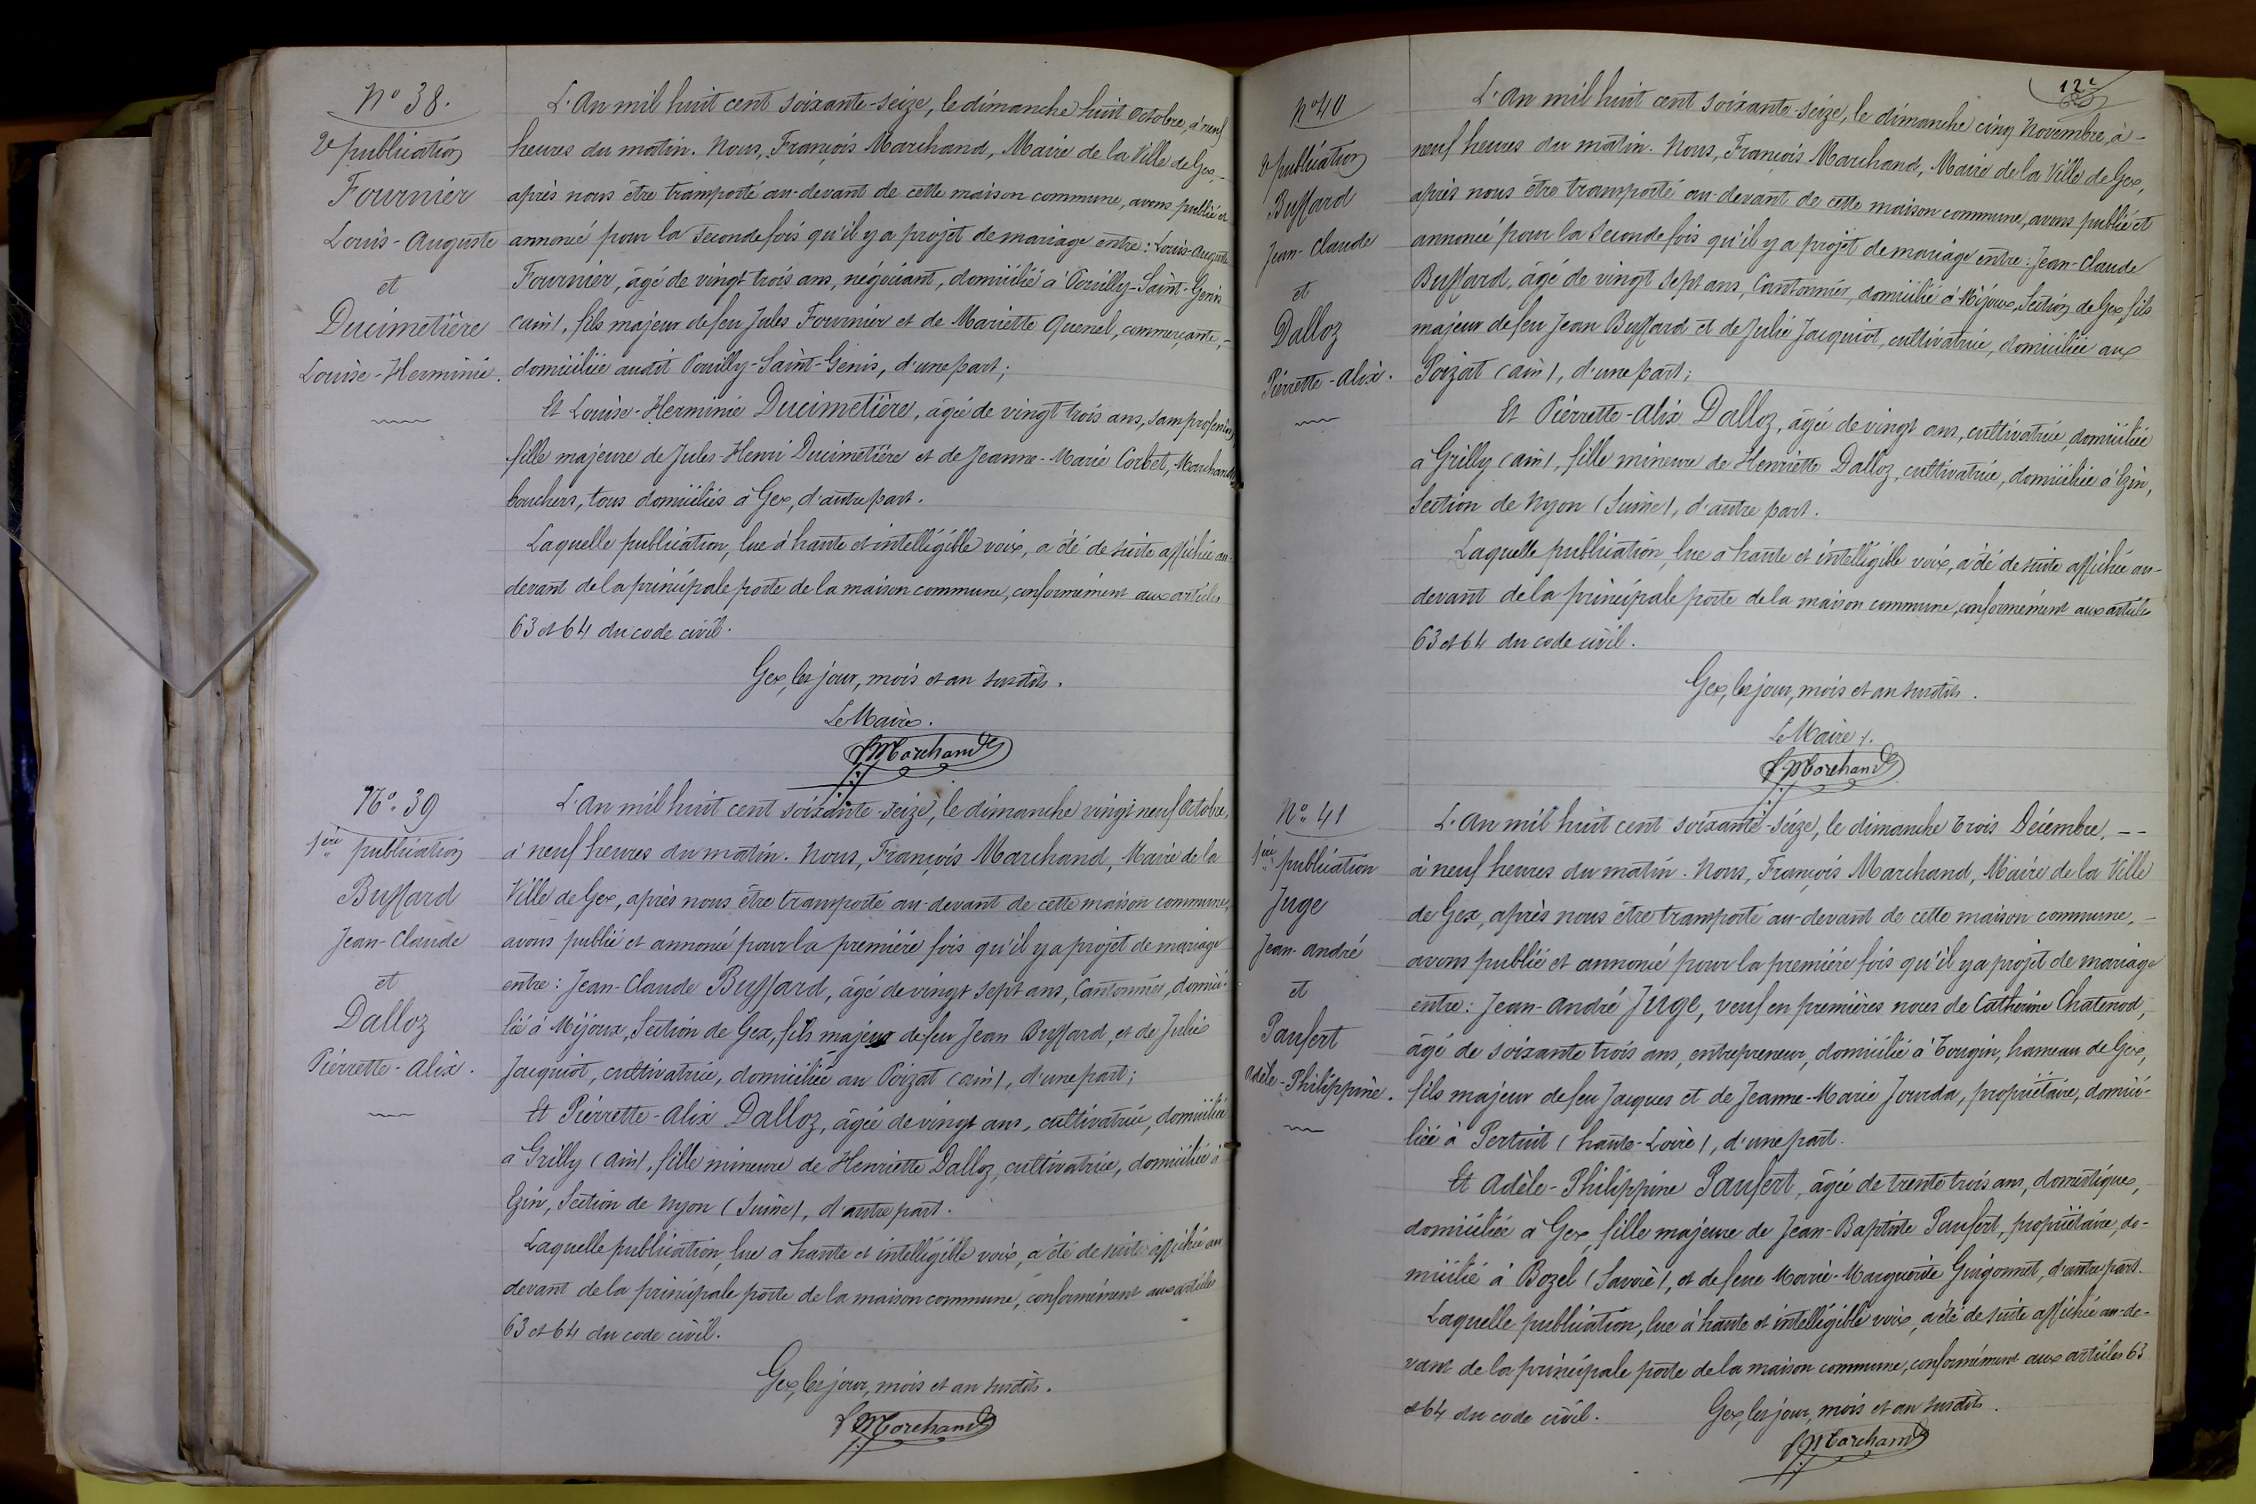 N° 38.
2e publication
Fournier
Louis-Auguste
et
Ducimetière
Louise-Herminie.
L'An mil huit cent soixante-seize, le dimanche huit Octobre, à neuf
heures du matin. Nous, François Marchand, Maire de la Ville de Gex, -
après nous être transporté au-devant de cette maison commune, avons publié et
annoncé pour la seconde fois qu'il y a projet de mariage entre: Louis-Auguste
Fournier, âgé de vingt trois ans, négociant, domicilié à Pouilly-Saint-Genis
(ain), fils majeur de feu Jules Fournier et de Mariette Quenel, commerçante, -
domiciliée audit Pouilly-Saint-Genis, d'une part;
Et Louise-Herminie Ducimetière, âgée de vingt trois ans, sans profession,
fille majeure de Jules-Henri Ducimetière et de Jeanne-Marie Corbet, Marchands
bouchers, tous domiciliés à Gex, d'autre part.
Laquelle publication, lue à haute et intelligible voix, a été de suite affichée au-
devant de la principale porte de la maison commune, conformément aux articles
63 et 64 du code civil.
Gex, les jour, mois et an susdits.
Le Maire.
F. Marchand
N° 39
1ère publication
Buffard
Jean-Claude
et
Dalloz
Pierrette-Alix.
L'An mil huit cent soixante-seize, le dimanche vingt neuf Octobre,
à neuf heures du matin. Nous, François Marchand, Maire de la
Ville de Gex, après nous être transporté au-devant de cette maison commune,
avons publié et annoncé pour la première fois qu'il y a projet de mariage
entre: Jean-Claude Buffard, âgé de vingt sept ans, Cantonnier, domici-
lié à Mijoux, Section de Gex, fils majeur de feu Jean Buffard, et de Julie
Jacquiot, cultivatrice, domiciliée au Poizat (ain), d'une part;
Et Pierrette-Alix Dalloz, âgée de vingt ans, cultivatrice, domiciliée
à Grilly (ain), fille mineure de Henriette Dalloz, cultivatrice, domiciliée à
Gzin, Section de Nyon (Suisse), d'autre part.
Laquelle publication, lue à haute et intelligible voix, a été de suite affichée au
devant de la principale porte de la maison commune, conformément aux articles
63 et 64 du code civil.
Gex, les jour, mois et an susdits.
F. Marchand
12e
N° 40
2e publication
Buffard
Jean-Claude
et
Dalloz
Pierrette-Alix.
L'An mil huit cent soixante-seize, le dimanche cinq Novembre, à -
neuf heures du matin. Nous, François Marchand, Maire de la Ville de Gex,
après nous être transporté au-devant de cette maison commune, avons publié et
annoncé pour la seconde fois qu'il y a projet de mariage entre: Jean-Claude
Buffard, âgé de vingt sept ans, Cantonnier, domicilié à Mijoux, Section de Gex, fils
majeur de feu Jean Buffard et de Julie Jacquiot, cultivatrice, domiciliée aux
Poizat (ain), d'une part;
Et Pierrette-Alix Dalloz, âgée de vingt ans, cultivatrice, domiciliée
à Grilly (ain), fille mineure de Henriette Dalloz, cultivatrice, domiciliée à Gzin,
Section de Nyon (Suisse), d'autre part.
Laquelle publication, lue à haute et intelligible voix, a été de suite affichée au-
devant de la principale porte de la maison commune, conformément aux articles
63 et 64 du code civil.
Gex, les jour, mois et an susdits.
Le Maire.
F. Marchand
N° 41
1ère publication
Juge
Jean-André
et
Paufert
Adèle-Philippine.
L'An mil huit cent soixante-seize, le dimanche trois Décembre, - -
à neuf heures du matin. Nous, François Marchand, Maire de la Ville
de Gex, après nous être transporté au-devant de cette maison commune, -
avons publié et annoncé pour la première fois qu'il y a projet de mariage
entre: Jean-André Juge, veuf en premières noces de Catherine Chatenod,
âgé de soixante trois ans, entrepreneur, domicilié à Tougin, hameau de Gex,
fils majeur de feu Jacques et de Jeanne-Marie Jourda, propriétaire, domici-
liée à Pertuit (haute-Loire), d'une part.
Et Adèle-Philippine Paufert, âgée de trente trois ans, domestique,
domiciliée à Gex, fille majeure de Jean-Baptiste Paufert, propriétaire, do-
micilié à Bozel (Savoie), et de feue Marie-Marguerite Guigonnet, d'autre part.
Laquelle publication, lue à haute et intelligible voix, a été de suite affichée au-de-
vant de la principale porte de la maison commune, conformément aux articles 63
et 64 du code civil. Gex, les jour, mois et an susdits.
F. Marchand